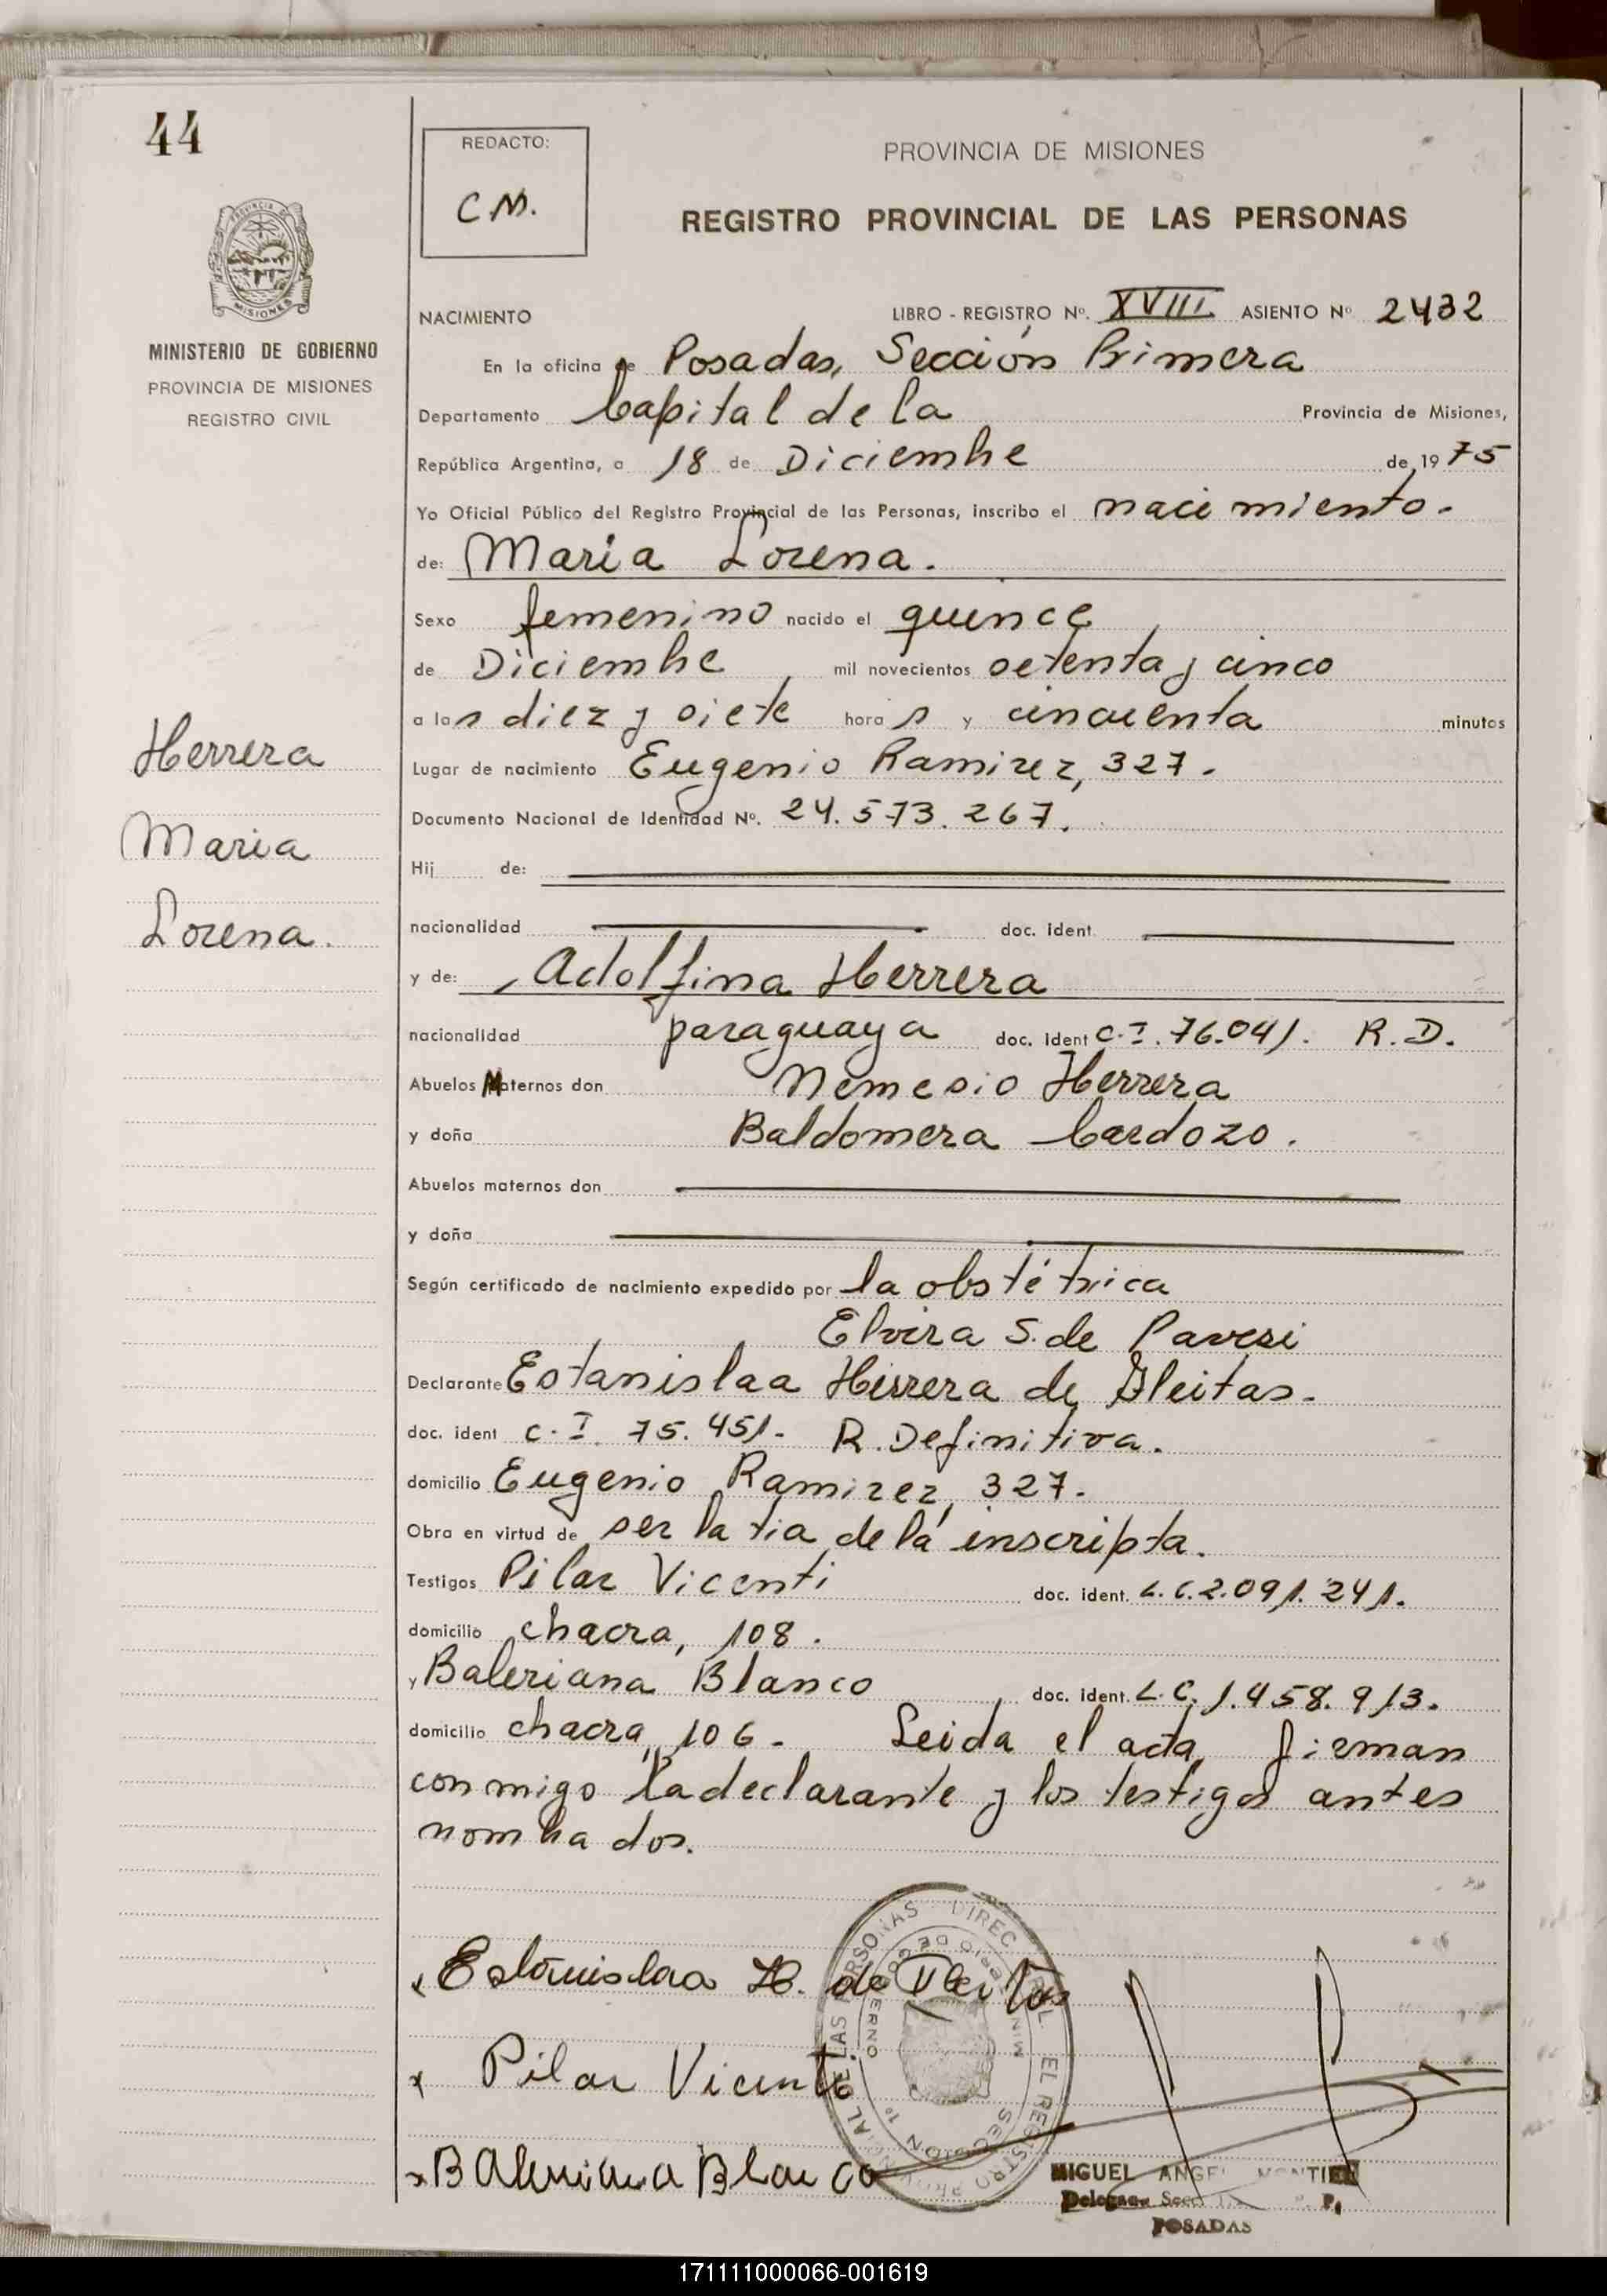 44
REDACTO:
C M.
PROVINCIA DE MISIONES
REGISTRO PROVINCIAL DE LAS PERSONAS
MISIONES
MINISTERIO DE GOBIERNO
PROVINCIA DE MISIONES
REGISTRO CIVIL
NACIMIENTO LIBRO - REGISTRO Nº. XVIII. ASIENTO Nº 2432
En la oficina de Posadas, Sección Primera
Departamento Capital de la Provincia de Misiones,
República Argentina, a 18 de Diciembre de 1975
Yo Oficial Público del Registro Provincial de las Personas, inscribo el nacimiento.
de: Maria Lorena.
Sexo femenino nacido el quince
de Diciembre mil novecientos setenta y cinco
a las diez y siete horas y cincuenta minutos
Lugar de nacimiento Eugenio Ramirez, 327.
Documento Nacional de Identidad Nº. 24.573.267.
Hij de:
nacionalidad doc. ident.
y de: Adolfina Herrera
nacionalidad paraguaya doc. ident C.I. 76.041. R.D.
Abuelos Maternos don Nemesio Herrera
y doña Baldomera Cardozo.
Abuelos maternos don
y doña
Según certificado de nacimiento expedido por la obstétrica
Elvira S. de Pavesi
Declarante Estanislaa Herrera de Gleitas.
doc. ident C.I. 75.451. R. Definitiva.
domicilio Eugenio Ramirez, 327.
Obra en virtud de ser la tia de la inscripta.
Testigos Pilar Vicenti doc. ident. L.C. 2.091.241.
domicilio chacra, 108.
y Baleriana Blanco doc. ident. L.C. 1.458.913.
domicilio chacra, 106. Leida el acta, firman
conmigo la declarante y los testigos antes
nombrados.
Herrera
Maria
Lorena.
Estanislaa H. de Gleitas
Pilar Vicenti
Baleriana Blanco
MIGUEL ANGEL MONTIEL
POSADAS
171111000066-001619